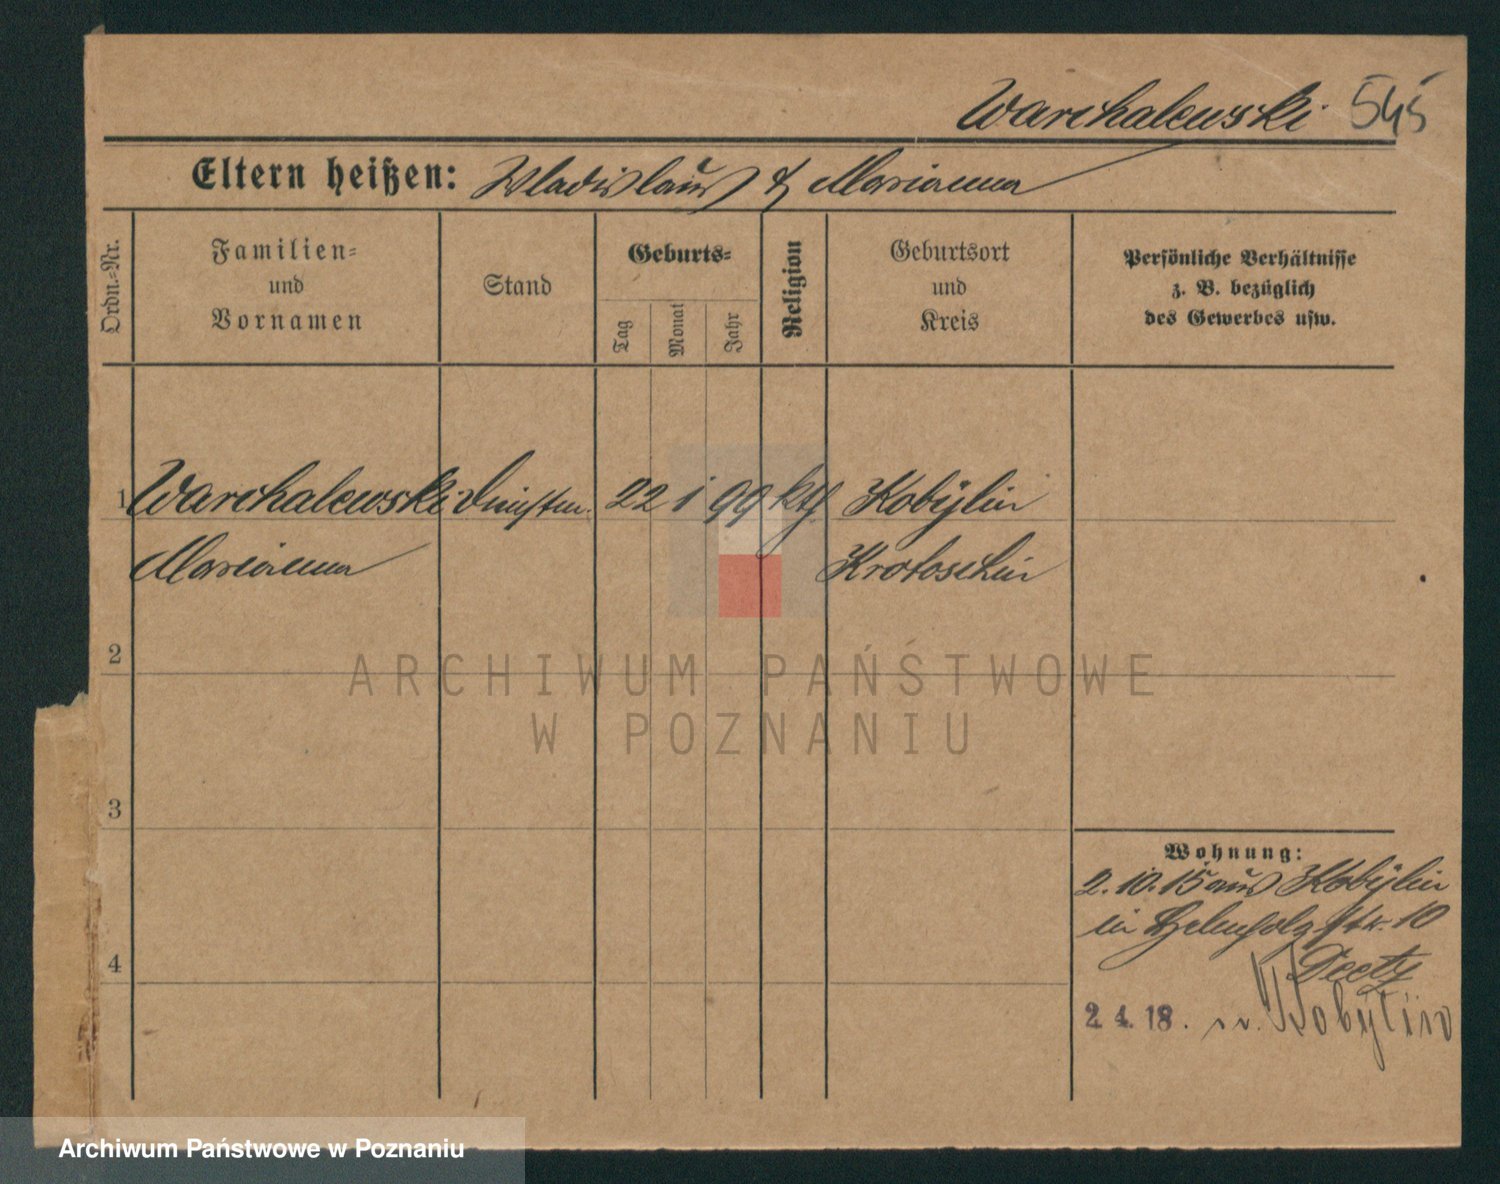 Warchalewski 545
Eltern heißen: Wladislaus & Marianna
Ordn.-Nr.
Familien-
und
Vornamen
Stand
Geburts-
Tag
Monat
Jahr
Religion
Geburtsort
und
Kreis
Persönliche Verhältnisse
z. B. bezüglich
des Gewerbes usw.
1 Warchalewski 22 1 99 kth Kobylin
Marianna Krotoschin
2
3
4
ARCHIWUM PAŃSTWOWE
W POZNANIU
Wohnung:
2.10.15 aus Kobylin
in str. 10
2.4.18. n. Kobylin
Archiwum Państwowe w Poznaniu